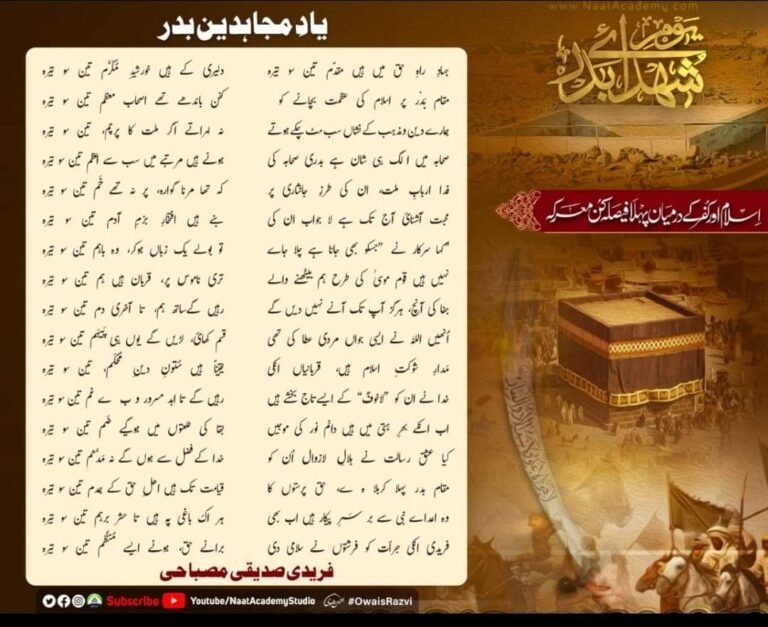 www.NaatAcademy.com
یادِ مجاہدین بدر
یوم شہدائے بدر
اسلام اور کفر کے درمیان پہلا فیصلہ کن معرکہ
جہادِ راہِ حق میں ہیں مقدم تین سو تیرہ دلیری کے ہیں خورشیدِ مکرم تین سو تیرہ
مقامِ بدر پر اسلام کی عظمت بچانے کو کفن باندھے تھے اصحابِ معظم تین سو تیرہ
ہمارے دین و مذہب کے نشاں سب مٹ چکے ہوتے نہ لہراتے اگر ملت کا پرچم، تین سو تیرہ
صحابہ میں الگ ہی شان ہے بدری صحابہ کی ہوئے ہیں مرتبے میں سب سے اعظم تین سو تیرہ
فدا اربابِ ملت، ان کی طرزِ جانثاری پر کہ تھا مرنا گوارہ، پر نہ تھے خم تین سو تیرہ
محبت آشنائی آج تک ہے لا جواب ان کی بنے ہیں افتخارِ بزمِ آدم تین سو تیرہ
کہا سرکار نے "جسکو بھی جانا ہے چلا جائے تو بولے یک زباں ہوکر، وہ باہم تین سو تیرہ
نہیں ہیں قومِ موسیٰ کی طرح ہم بیٹھنے والے تری ناموس پر، قربان ہیں ہم تین سو تیرہ
جفا کی آنچ، ہرگز آپ تک آنے نہیں دیں گے رہیں گے ساتھ ہم، تا آخری دم تین سو تیرہ
اُنھیں اللہ نے ایسی جواں مردی عطا کی تھی قسم کھائی، لڑیں گے یوں ہی پیہم تین سو تیرہ
مدارِ شوکتِ اسلام ہیں، قربانیاں انکی یقیناً ہیں ستونِ دینِ محکم، تین سو تیرہ
خدا نے ان کو "لاخوفٌ" کے ایسے تاج بخشے ہیں رہیں گے تا ابد مسرور و بے غم تین سو تیرہ
اب انکے بحرِ ہستی میں ہیں دائم نور کی موجیں بقا کی طلعتوں میں ہوگیے ضم تین سو تیرہ
کیا عشقِ رسالت نے ہلالِ لازوال اُن کو خدا کے فضل سے ہوں گے نہ مدھم تین سو تیرہ
مقامِ بدر پہلا کربلا ہے، حق پرستوں کا قیامت تک ہیں اھلِ حق کے ہمدم تین سو تیرہ
وہ اعدائے نبی سے بر سرِ پیکار ہیں اب بھی ہر اک باغی پہ ہیں تا حشر برہم تین سو تیرہ
فریدی انکی جرأت کو فرشتوں نے سلامی دی برائے حق، ہوئے ایسے منظم تین سو تیرہ
فریدی صدیقی مصباحی
Subscribe Youtube/NaatAcademyStudio #OwaisRazvi